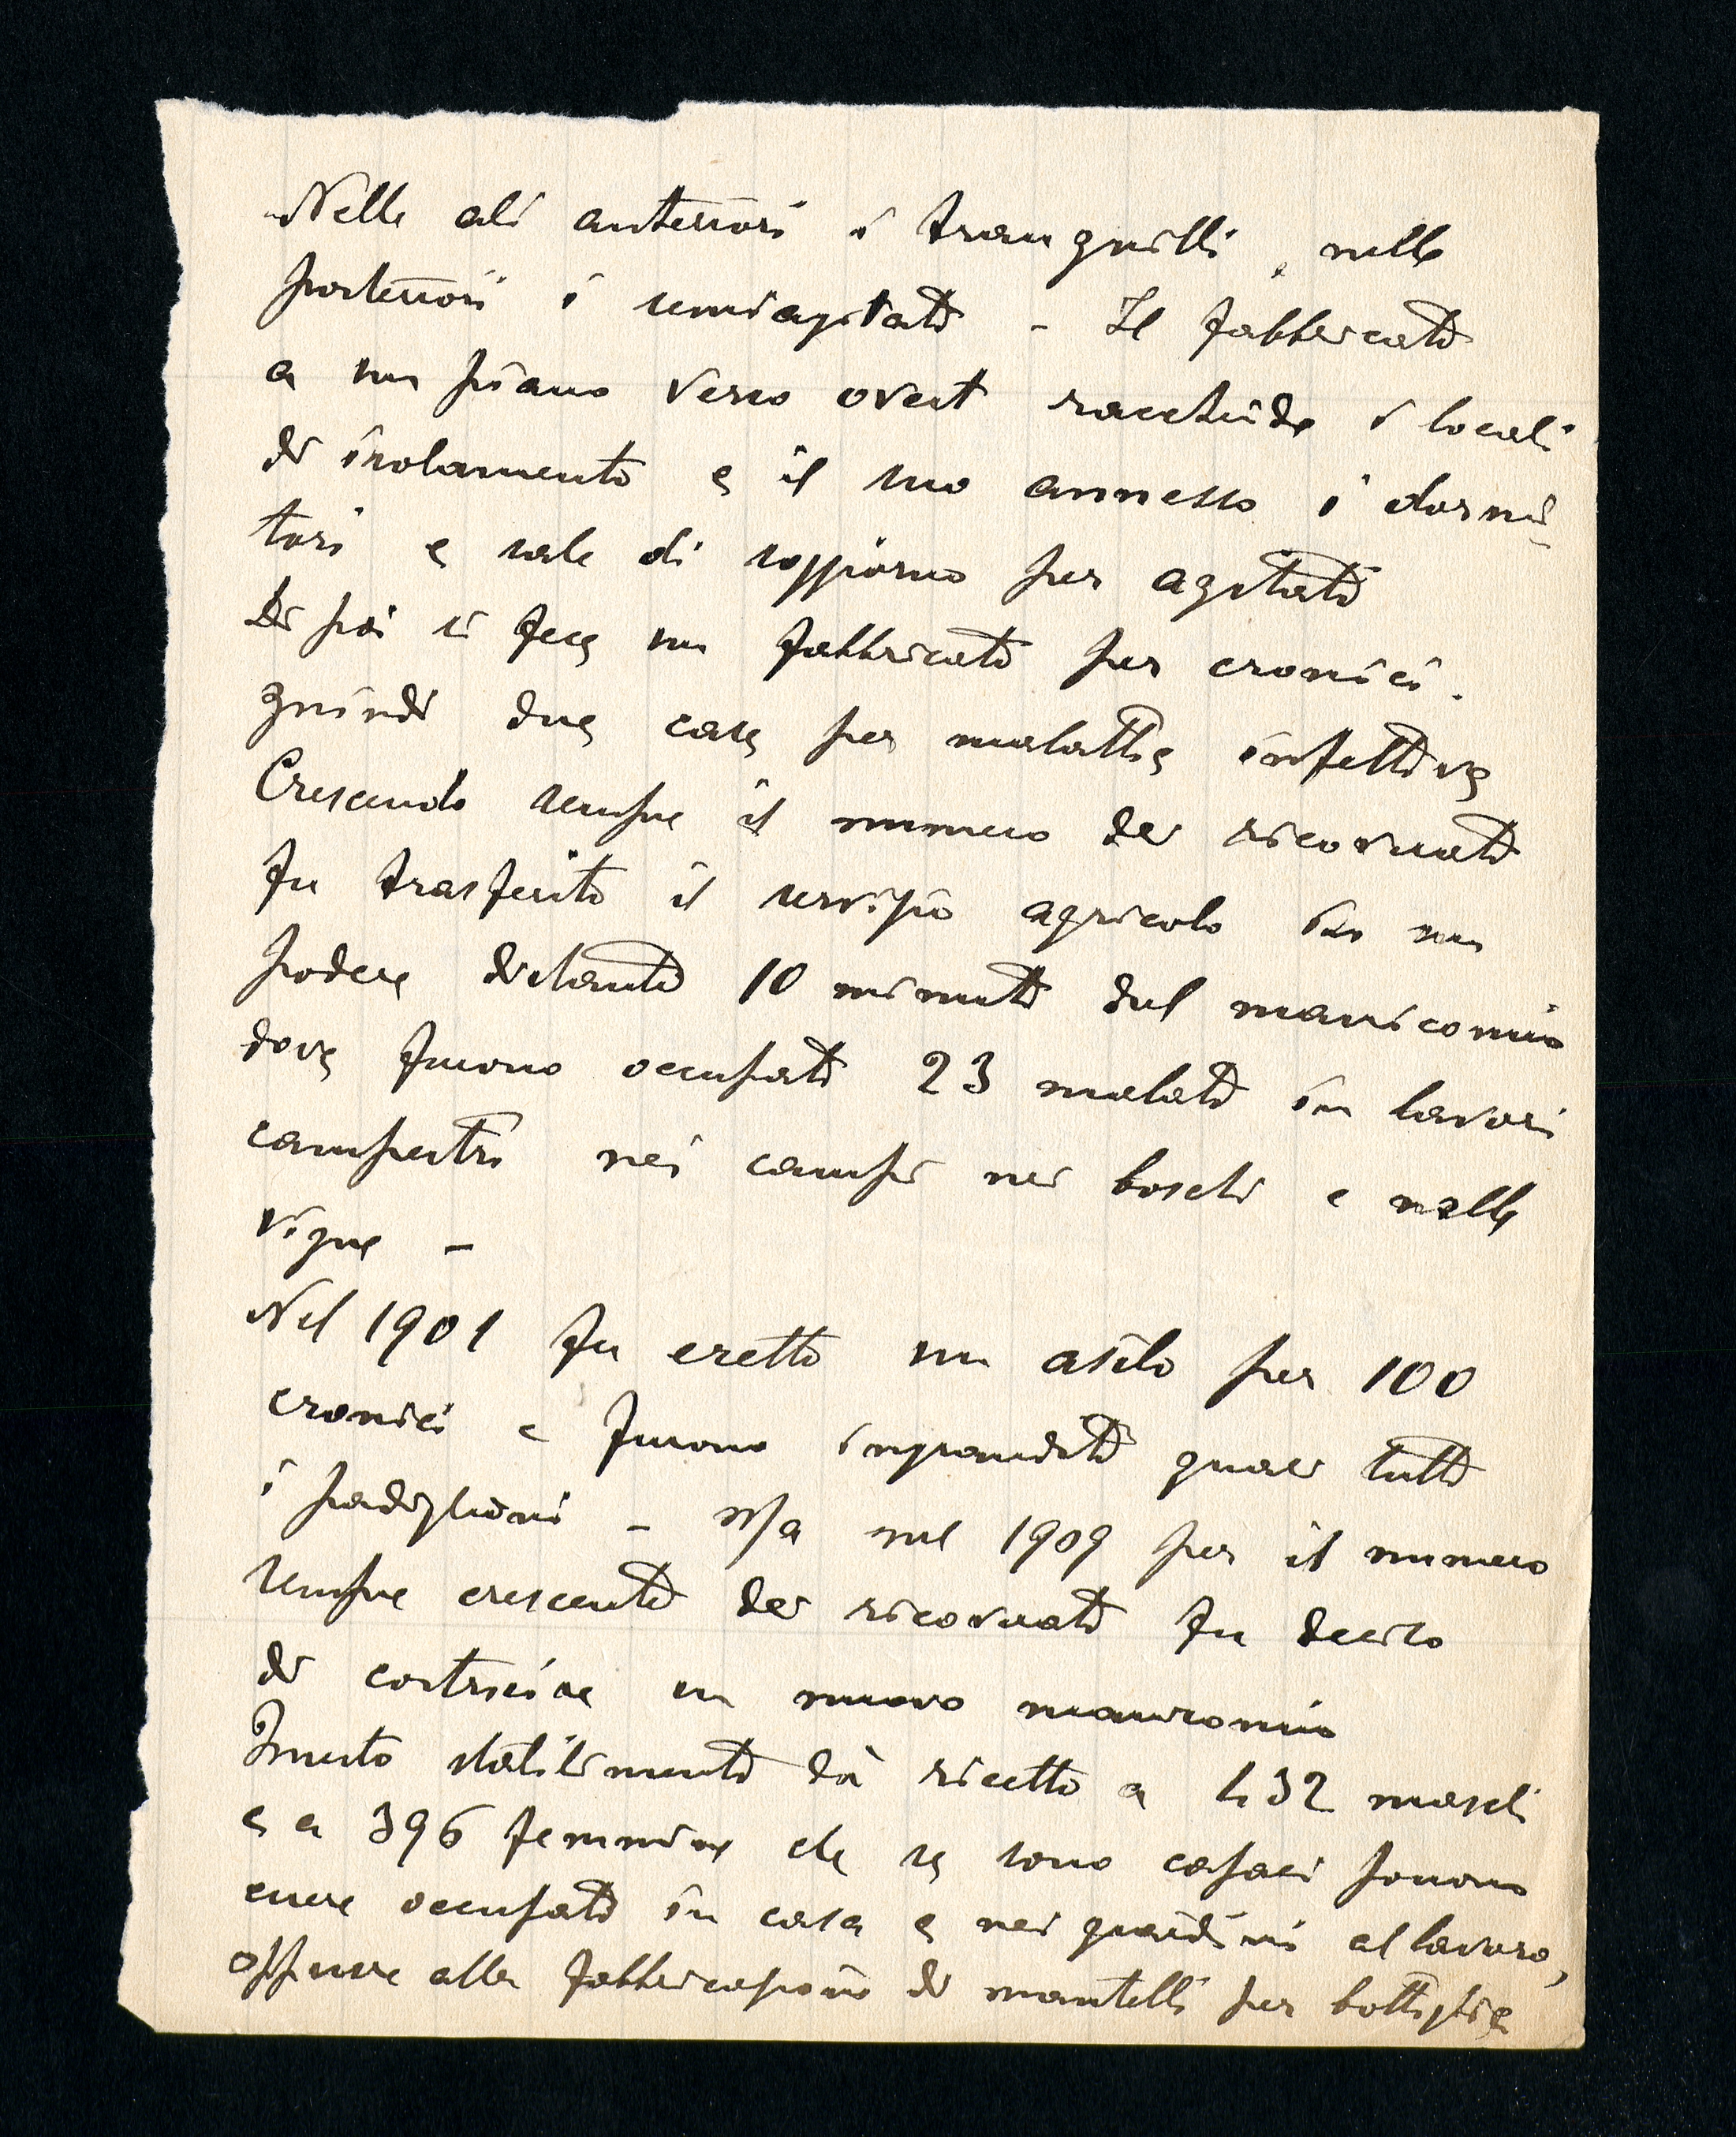 Nelle ali anteriori i tranquilli, nelle
posteriori i semiagitati - Il fabbricato
a un piano verso ovest racchiude i locali
di isolamento e il suo annesso i dormi-
tori e sale di soggiorno per agitati
Di poi si fece un fabbricato per cronici.
quindi due case per malattie infettive
Crescendo sempre il numero dei ricoverati
fu trasferito il servizio agricolo in un
podere distante 10 minuti dal manicomio
dove furono occupati 23 malati in lavori
campestri nei campi nei boschi e nelle
vigne -
Nel 1901 fu eretto un asilo per 100
cronici e furono ingranditi quasi tutti
i padiglioni - Ma nel 1909 per il numero
sempre crescente dei ricoverati fu deciso
di costruire un nuovo manicomio
Questo stabilimento dà ricetto a 432 maschi
e a 396 femmine che se sono capaci possono
essere occupati in casa e nei giardini al lavoro,
oppure alla fabbricazione di mantelli per bottiglie